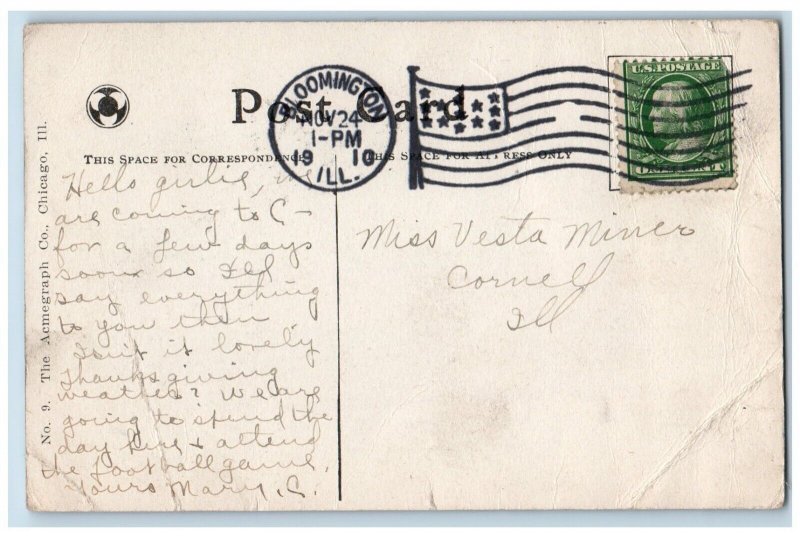 Post Card
BLOOMINGTON
NOV 24
1-PM
1910
ILL.
U.S. POSTAGE
THIS SPACE FOR CORRESPONDENCE
THIS SPACE FOR ADDRESS ONLY
No. 9. The Acmegraph Co., Chicago, Ill.
Hello girlie, we
are coming to C–
for a few days
soon so I'll
say everything
to you then
Isn't it lovely
thanksgiving
weather? We are
going to spend the
day here & attend
the football game.
Yours Mary. C.
Miss Vesta Miner
Cornell
Ill